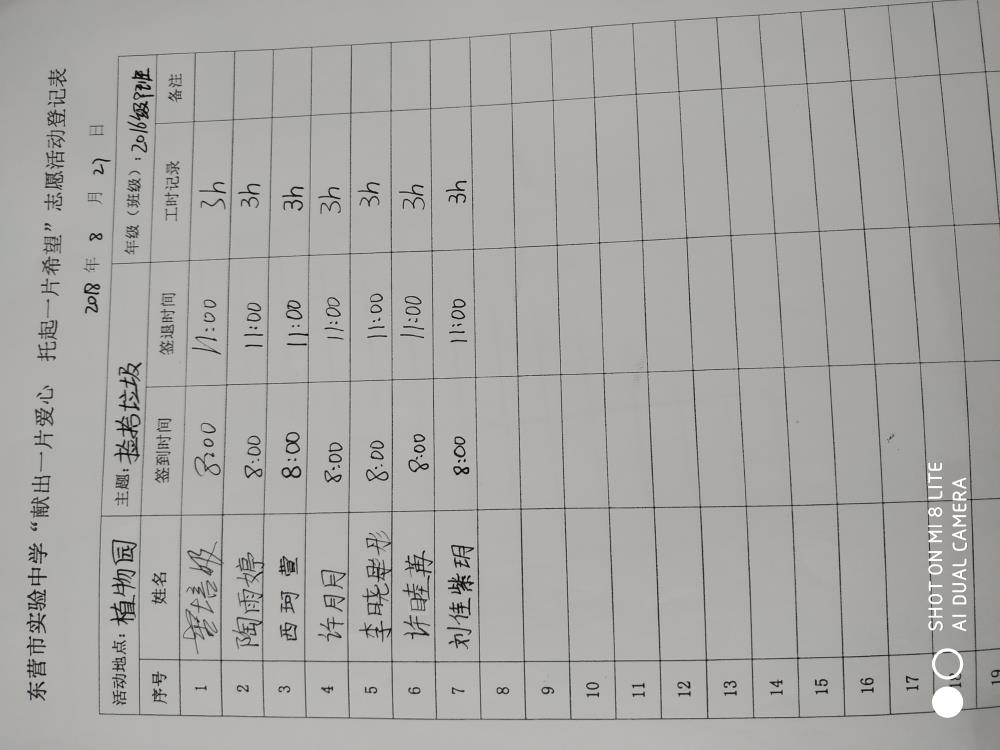 东营市实验中学“献出一片爱心 托起一片希望”志愿活动登记表
2018 年 8 月 27 日
活动地点: 植物园 主题: 捡拾垃圾 年级（班级）: 2016级
序号 姓名 签到时间 签退时间 工时记录 备注
1 8:00 11:00 3h
2 陶雨婷 8:00 11:00 3h
3 西珂萱 8:00 11:00 3h
4 许月月 8:00 11:00 3h
5 李晓彤 8:00 11:00 3h
6 许睦苒 8:00 11:00 3h
7 刘佳紫玥 8:00 11:00 3h
8
9
10
11
12
13
14
15
16
17
18
19
SHOT ON MI 8 LITE
AI DUAL CAMERA